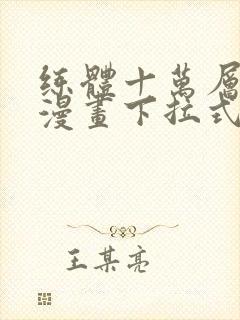 练體十萬層
漫畫下拉式
王某亮